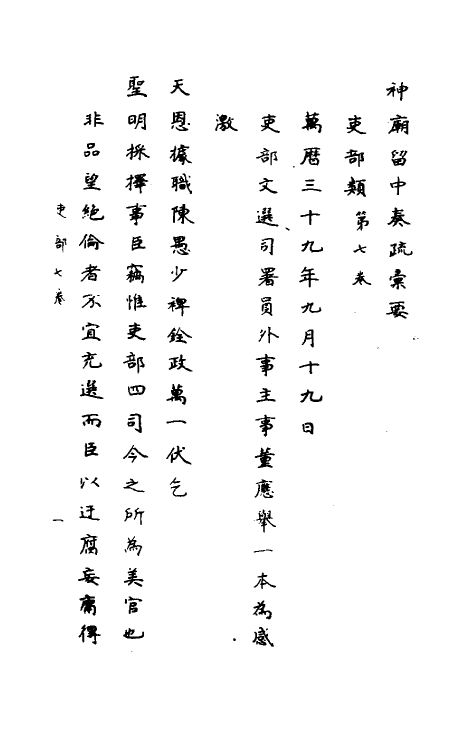 神廟留中奏疏彙要
吏部類第七卷
萬曆三十九年九月十九日
吏部文選司署員外事主事董應舉一本為感
激
天恩據職陳愚少裨銓政萬一伏乞
聖明採擇事臣竊惟吏部四司今之所為美官也
非品望絕倫者不宜充選而臣以迂腐妄庸得
吏部七卷
一